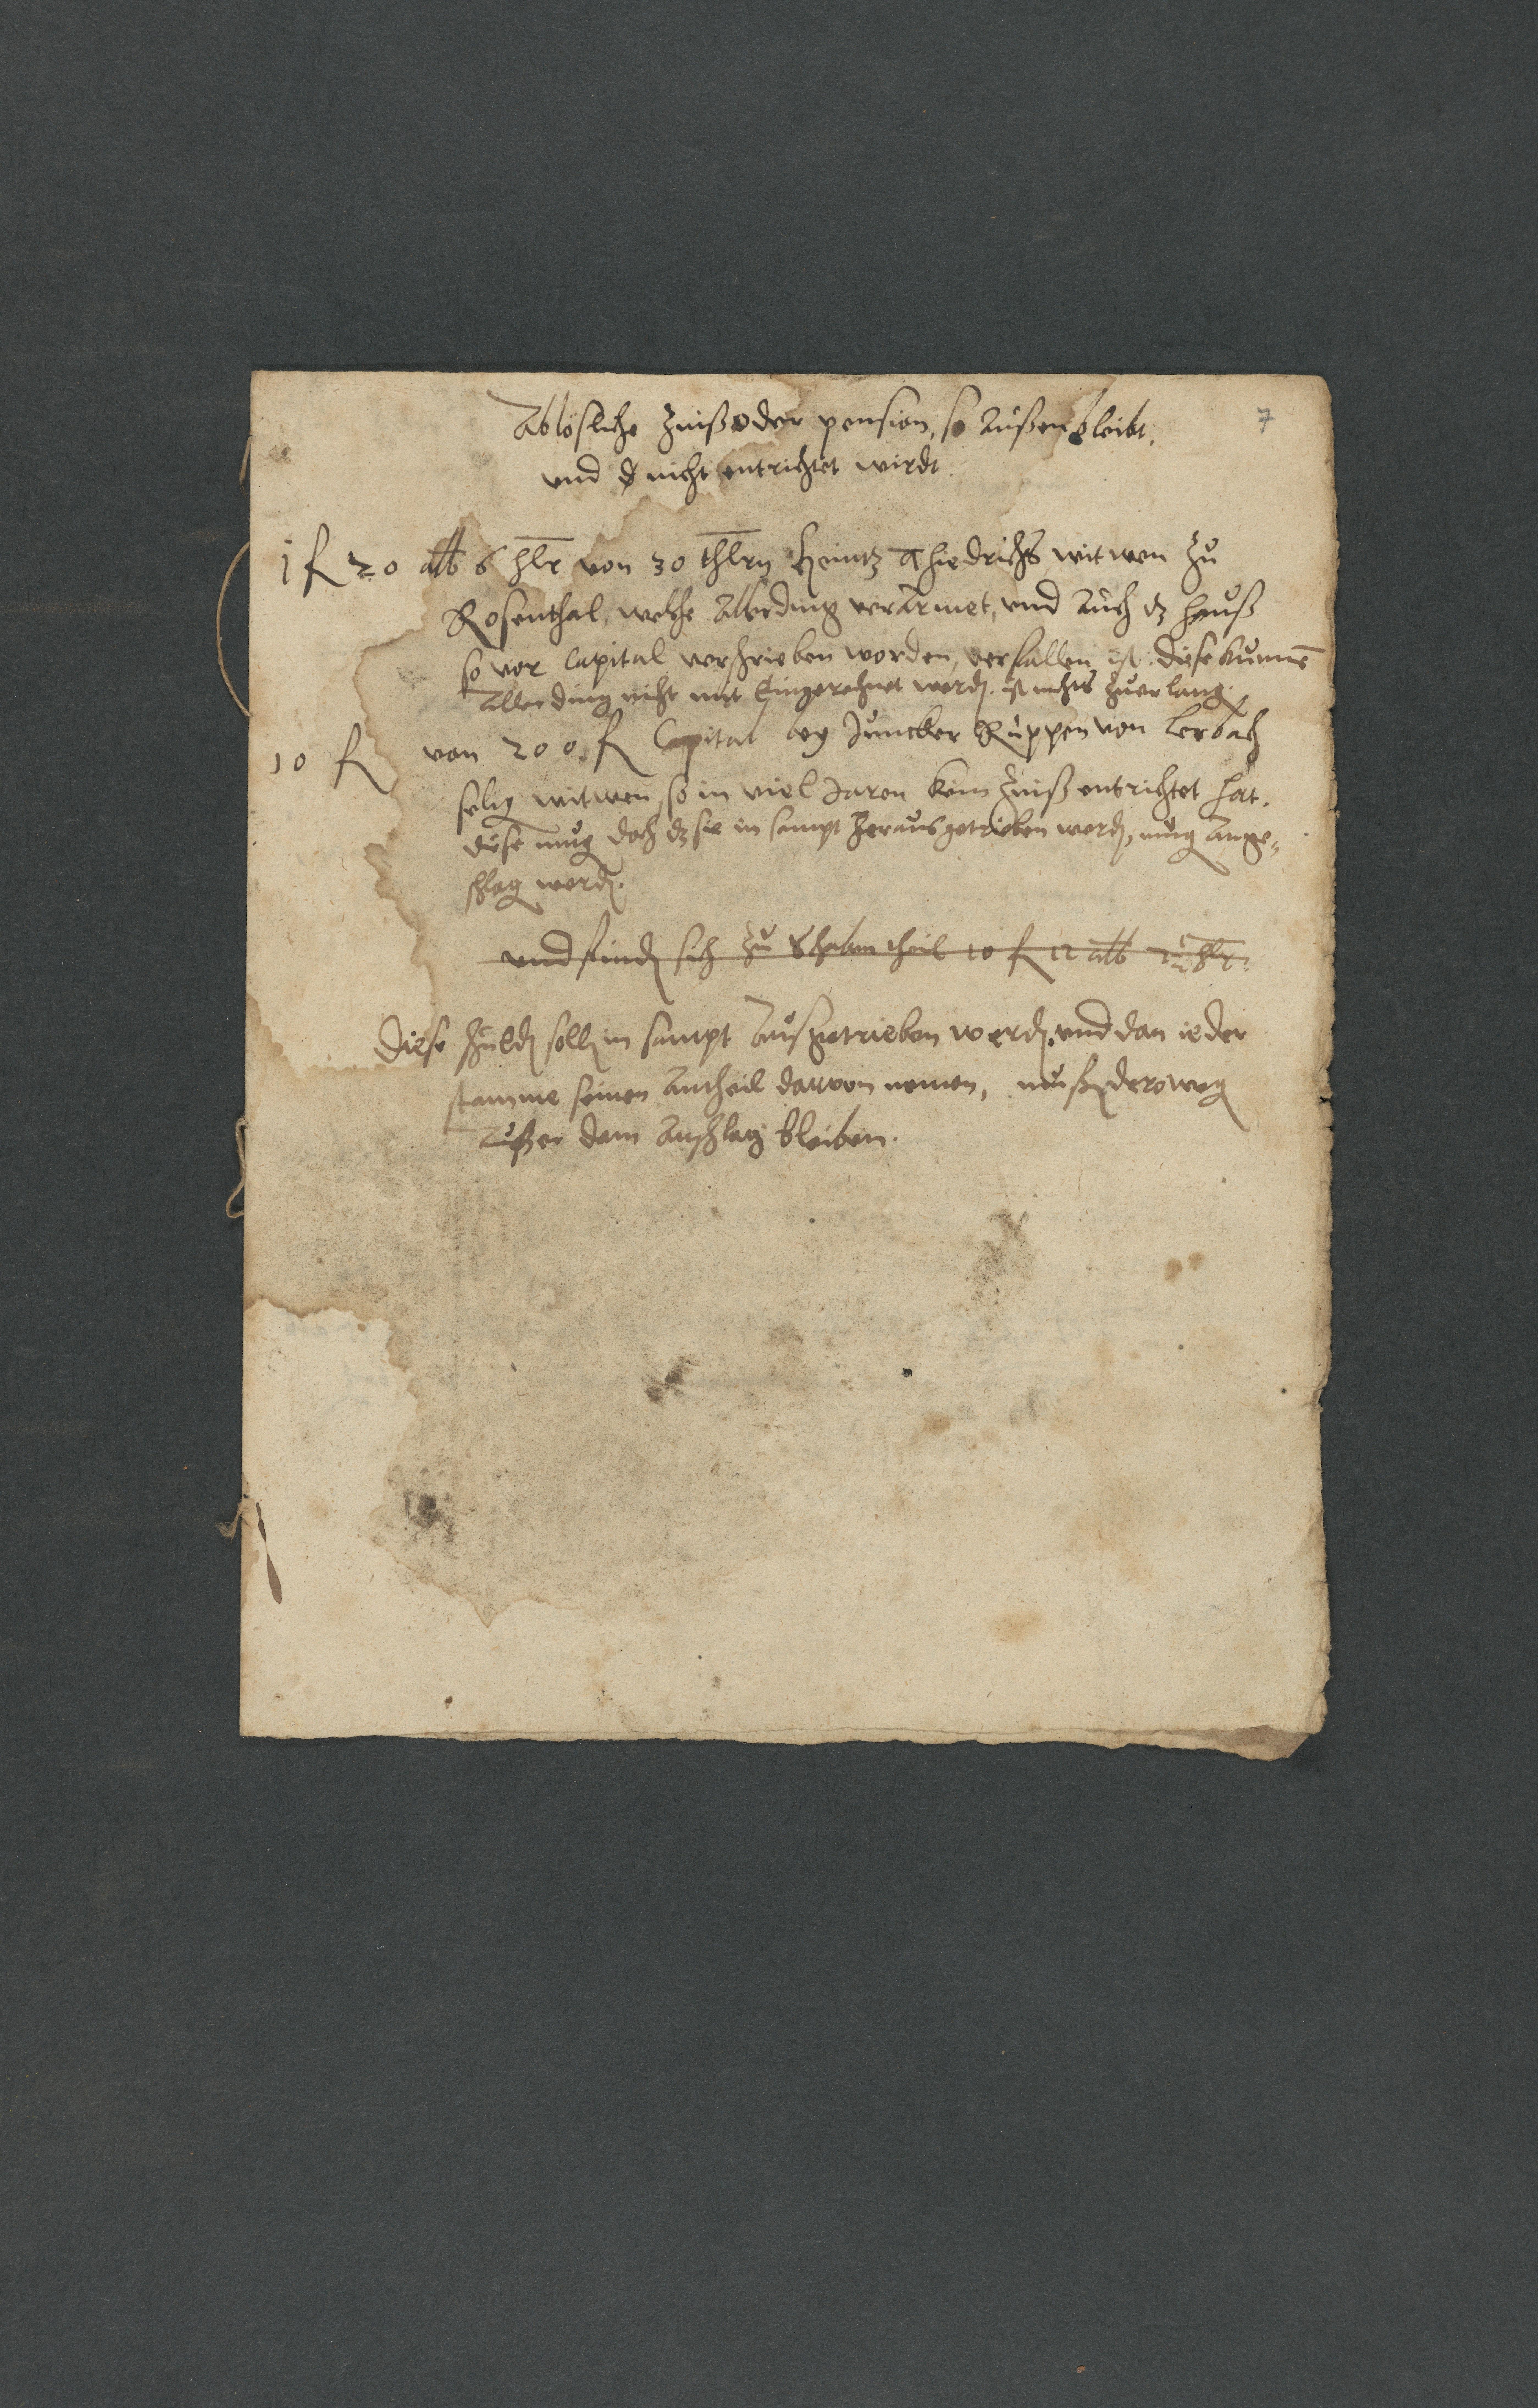 Ablösliche Zinß oder pension, so Außen bleibt,
7
und nicht entrichtet wirdt.
1 fl 20 alb 6 hlr von 30 thlrn Heintz Thiedrichs witwen zu
Rosenthal, welche Allerding verarmet, und Auch dz Hauß
so vor Capital verschrieben worden, verfallen ist. diese kunnē
Allerding nicht mit Eingerechnet werdē. ist nichts zuerlangē.
10 fl von 200 fl Capital bey Juncker Ruppen von Lerbach
selig witwen, so in viel Jaren kein Zinß entrichtet hat.
diese mug doch dz sie in sampt heraus getrieben werdē, mug Ange-
schlagē werdē.
und findē sich zu theil 10 fl 12 alb hlr.
Diese schuldē sollē in sampt Außgetrieben werdē. und dan ieder
stamme seinen Antheil darvon nemen, mußē derowegē
Außer dem Anschlag bleiben.